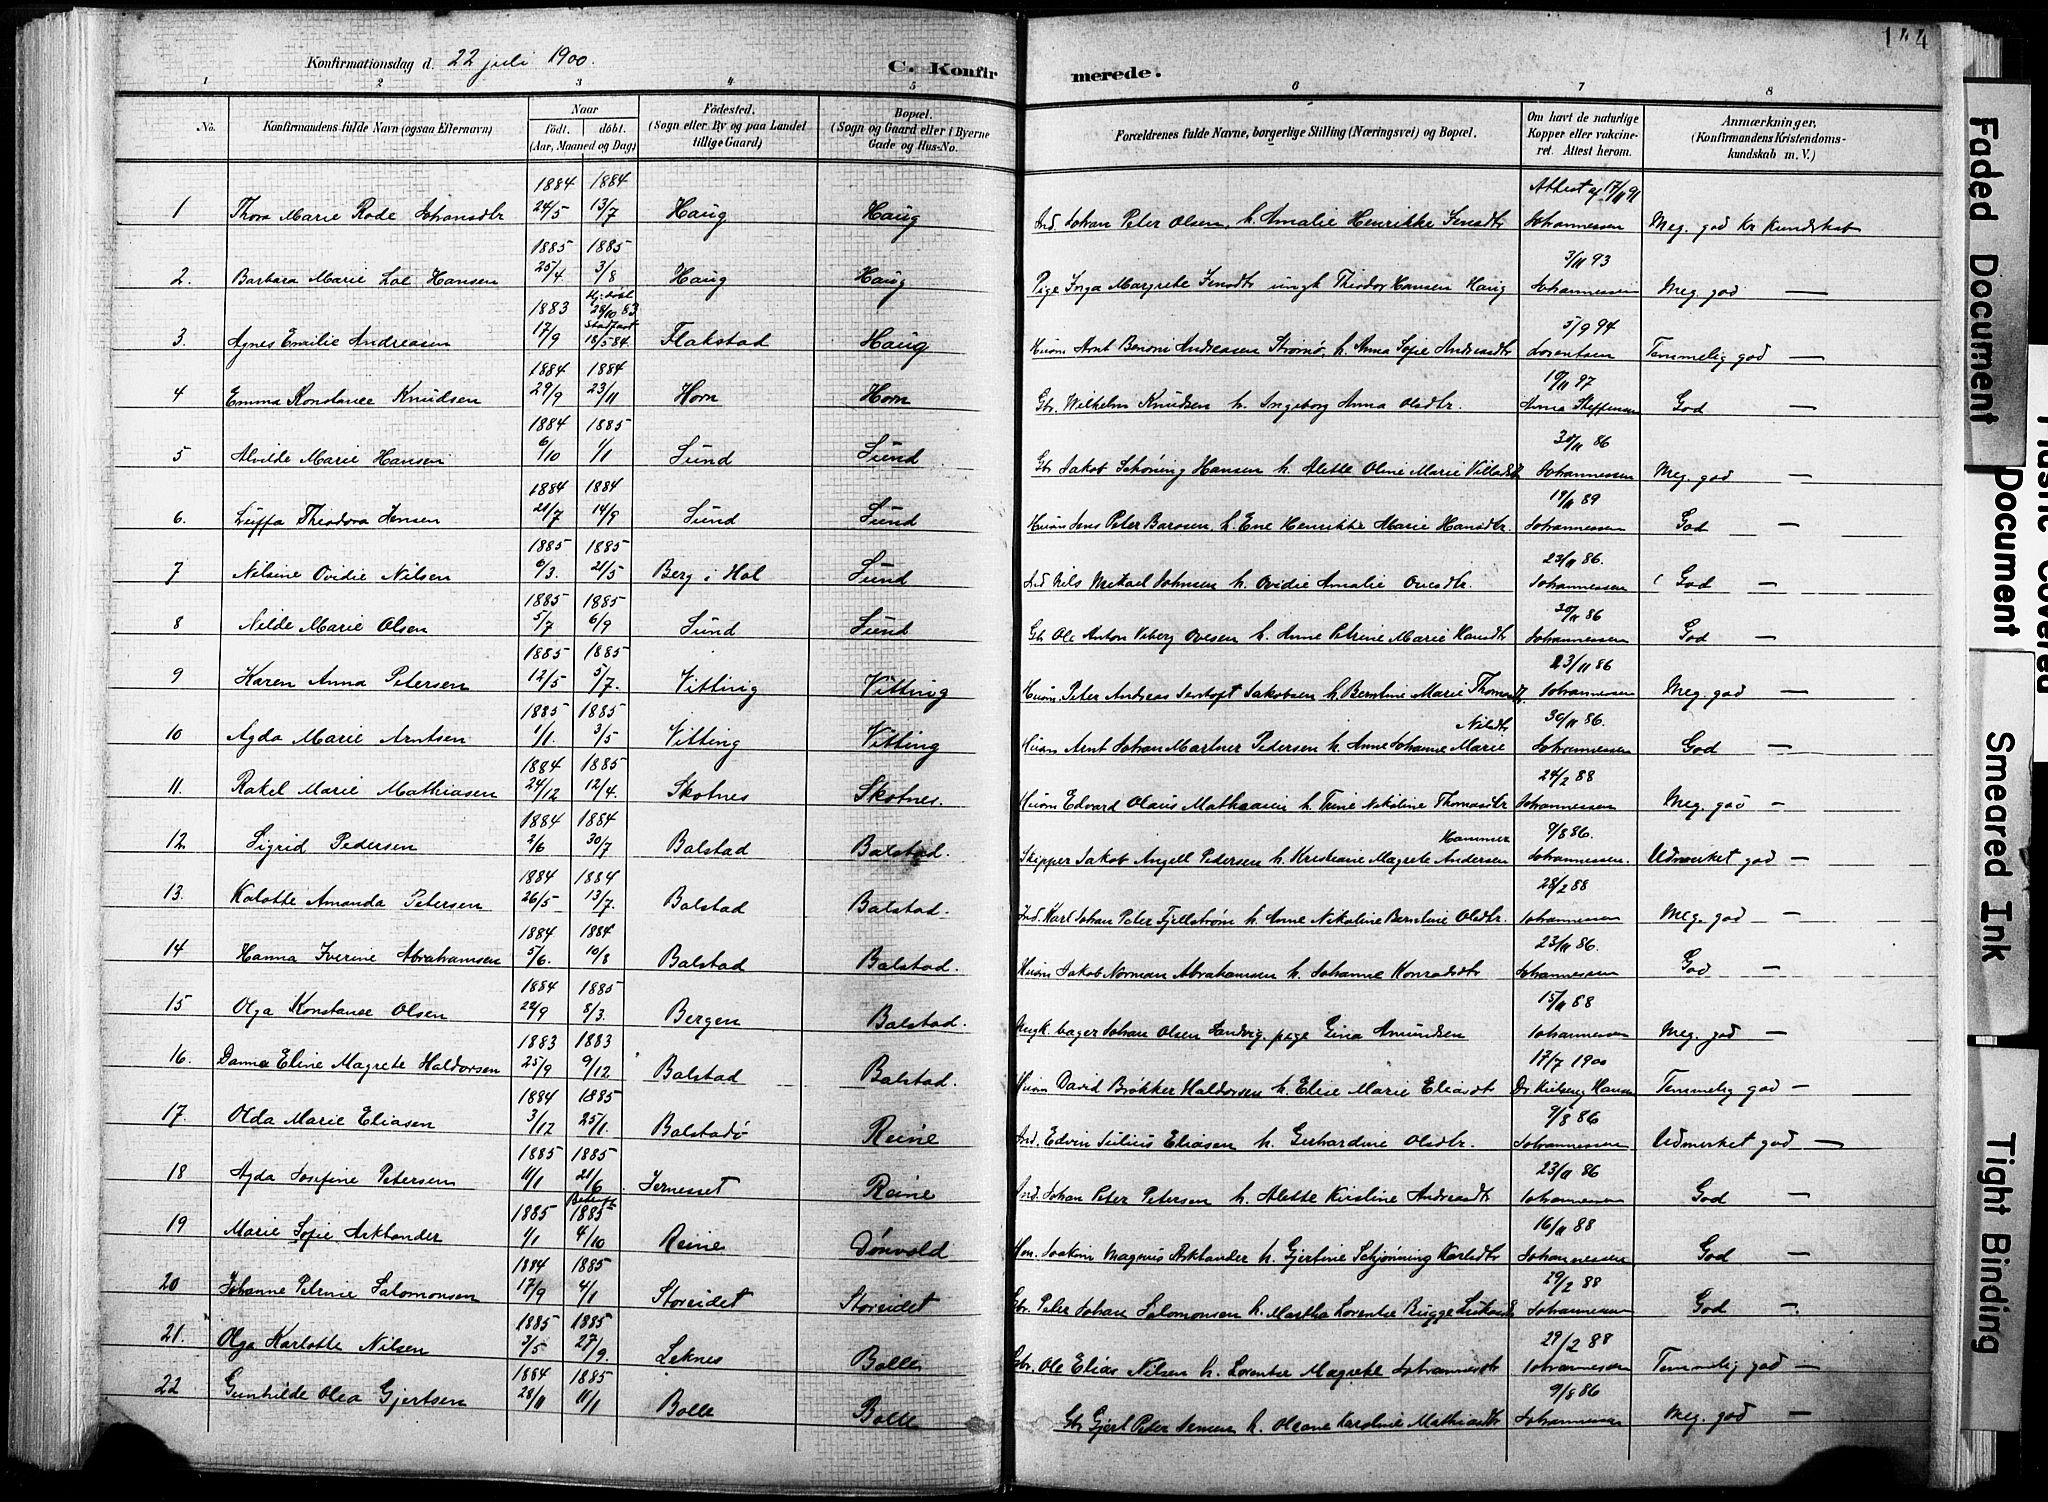 144
Konfirmationsdag d. 22 juli 1900. C. Konfirmerede.
1 2 3 4 5 6 7 8
No. Konfirmandens fulde Navn (ogsaa Efternavn) Naar født. døbt. (Aar, Maaned og Dag) Fødested. (Sogn eller By og paa Landet tillige Gaard) Bopæl. (Sogn og Gaard eller i Byerne Gade og Hus-No. Forældrenes fulde Navne, borgerlige Stilling (Næringsvei) og Bopæl. Om havt de naturlige Kopper eller vakcineret. Attest herom. Anmærkninger, (Konfirmandens Kristendomskundskab m. V.)
1884 1884 Attest af 17/11 91
1 Thora Marie Rode Johansdtr 24/5 13/7 Haug Haug Ind. Johan Peter Olsen, h. Amalie Henrikke Jensdtr Johannessen Meg. god Kr kundskab
1885 1885 3/11 93
2. Barbara Marie Hansen 25/4 3/8 Haug Haug Pige Inga Margrete Jensdtr ungk Theodor Hansen Haug Johannessen Meg. god —
1883 Hj. døbt 28/10 83 5/9 94
3. Agnes Emilie Andreasen 17/9 stadfæst 18/5 84. Flakstad Haug Husm Arnt Benoni Andreasen Strømø, h. Anna Sofie Andreasdtr Lorentsen Temmelig god —
1884 1884 19/11 97
4 Emma Konstance Knudsen 29/9 23/11 Horn Horn Gbr. Wilhelm Knudsen h. Ingeborg Anna Olsdtr. Anna Steffensen God —
1884 1885 30/11 86
5 Alvilde Marie Hansen 6/10 1/1 Sund Sund Gbr Jakob Schøning Hansen h. Aletle Oline Marie Johannessen Meg. god —
1884 1884 19/11 89
6. Theodora Jensen 21/7 14/9 Sund Sund Husm Jens Peter h. Ene Henrikke Marie Hansdtr. Johannessen God —
1885 1885 23/11 86.
7 Nilsine Ovidie Nilsen 6/3. 21/5 Berg i Hol Sund Ind Nils Mikael Johnsen h. Ovidie Amalie Ovesdtr. Johannessen God —
1885 1885 30/11 86
8 Nilde Marie Olsen 5/7 6/9 Sund Sund Gbr Ole Anton Viberg Ovesen h. Anne Petrine Marie Hansdtr Johannessen God —
1885 1885 23/11 86
9 Karen Anna Petersen 12/5 5/7. Vitting Vitting Husm. Peter Andreas Jakobsen h Berntine Marie Thomasdtr. Johannessen Meg. god —
1885 1885 Nilsdtr 30/11 86.
10 Agda Marie Arntsen 1/1. 3/5 Vitting Vitting Husm Arnt Johan Martner Pedersen h. Anne Johanne Marie Johannessen God —
1884 1885 24/2 88
11. Rakel Marie Mathiasen 24/12 12/4. Skotnes Skotnes. Husm Edvard Olaus Mathiasen h. Trine Nikoline Thomasdtr Johannessen Meg. god —
1884 1884 Hammer 9/8 86.
12 Sigrid Pedersen 2/6 30/7 Balstad Balstad. Skipper Jakob Angell Pedersen h. Kristiane Magrete Andersen Johannessen. Udmærket god —
1884 1884 28/2 88
13. Kalotte Amanda Petersen 26/5 13/7. Balstad Balstad. Ind. Karl Johan Peter Fjellstrøm h. Anne Nikoline Berntine Olsdtr. Johannessen Meg. god —
1884 1884 23/11 86.
14 Hanna Iverine Abrahamsen 5/6. 10/8 Balstad Balstad. Husm Jakob Norman Abrahamsen h. Johanne Konradsdtr Johannessen God —
1884 1885 15/11 88
15 Olga Konstanse Olsen 22/9 8/3. Bergen Balstad. Ungk. bager Johan Olsen Sandvig, pige Gina Amundsen Johannessen Meg. god —
1883 1883 17/7 1900
16. Danna Eline Magrete Haldorsen 25/9 9/12 Balstad Balstad. Husm David Brökker Haldorsen h. Elise Marie Eliasdt Dr. Hansen Temmelig god —
1884 1885 9/8 86
17. Olda Marie Eliasen 3/12 25/1. Balstadö Reine Ind. Edvin Julius Eliasen h. Gerhardine Olsdtr. Johannessen Udmerket god —
1885 1885 23/11 86
18 Agda Josefine Petersen 11/1 21/6 Jernesset Reine Ind. Johan Peter Petersen h. Alette Kirstine Andreasdtr Johannessen God —
1885 1885 16/11 88
19 Marie Sofie Arktander 1/1 4/10 Reine Dönvold Joakim Magnus Arktander h. Gjertine Schjønning Karlsdtr Johannessen God —
1884 1885 29/2 88
20 Johanne Petrine Salomonsen 17/9 4/1 Storeidet Storeidet Gbr. Peter Johan Salomonsen h. Martha Lorentse Bugge Johannessen God —
1885 1885 29/2 88
21. Olga Karlotte Nilsen 3/5 27/9. Leknes Bolle Gbr. Ole Elias Nilsen h. Lorentse Magrete Johannesdtr Johannessen Temmelig god —
1884 1885 9/8 86
22 Gunhilde Olea Gjertsen 28/11 11/1 Bolle Bolle Gbr Gjert Peter Jensen h. Olsane Karoline Mathiasdtr Johannessen Meg. god —
Faded Document
Document
Smeared Ink
Tight Binding